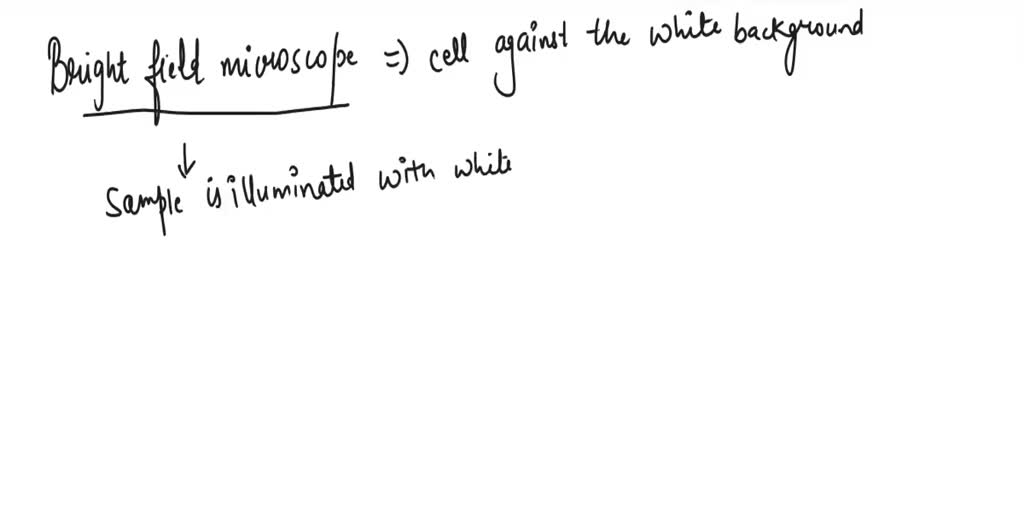 Bright field microscope => cell against the white background
↓
Sample is illuminated with white